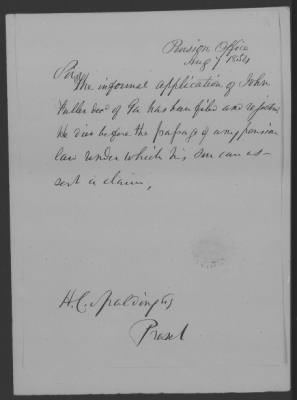 Pension Office
Aug 7 1854
Sir,
The informal application of John
Fuller decd of Ga has been filed and rejected
He died before the passage of any pension
law under which his son can as-
sert a claim,
H. C. Spalding Esq
Present